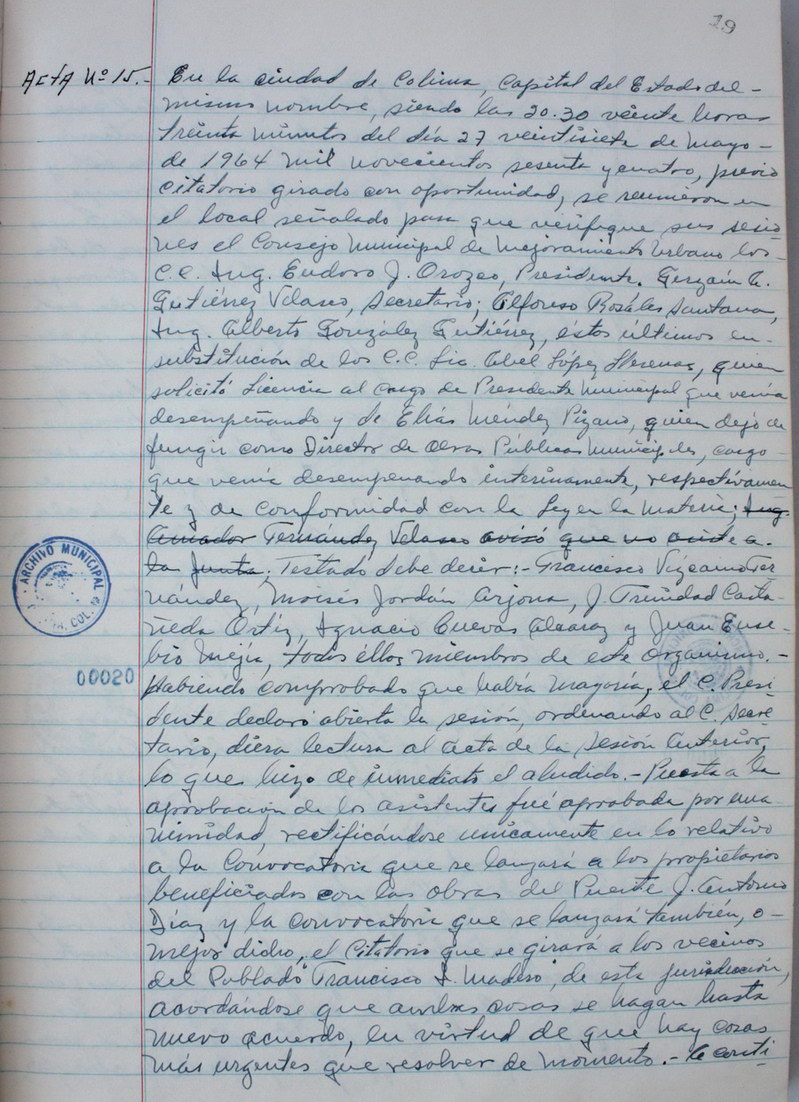 19
Acta Nº 15.- En la ciudad de Colima, Capital del Estado del-
mismo nombre, siendo las 20.30 veinte horas
treinta minutos del día 27 veintisiete de Mayo-
de 1964 mil novecientos sesenta y cuatro, previo
citatorio girado con oportunidad, se reunieron en
el local señalado para que verifique sus sesio
nes el Consejo Municipal de Mejoramiento Urbano los-
C.C. Ing. Eudoro J. Orozco, Presidente. Gerzaín A.
Gutiérrez Velasco, Secretario; Alfonso Rosáles Santana,
Ing. Alberto González Gutiérrez, éstos últimos en-
substitución de los C.C. Lic. Abel López Llerenas, quien
solicitó Licencia al cargo de Presidente Municipal que venía
desempeñando y de Elías Méndez Pizano, quien dejó de
fungir como Director de Obras Públicas Municipales, cargo-
que venía desempenando interinamente, respectivamen
te y de conformidad con la Ley en la Materia; Ing.
Amador Fernández Velasco avisó que no asiste a-
la Junta. Testado debe decir:- Francisco Vizcaino Fer
nández, Moisés Jordán Arjona, J. Trinidad Casta-
ñeda Ortíz, Ignacio Cuevas Alcaraz y Juan Euse-
bio Mejía, todos éllos miembros de este Organismo.-
Habiendo comprobado que había mayoría, el C. Presi-
dente declaró abierta la sesión, ordenando al C. Secre-
tario, diera lectura al acta de la Sesión Anterior,
lo que hizo de inmediato el aludido.- Puesta a la
aprobación de los asistentes fué aprobada por una
nimidad, rectificándose unicamente en lo relativo
a la Convocatoria que se lanzará a los propietarios
beneficiados con las obras del Puente J. Antonio
Díaz y la convocatoria que se lanzará también, o-
mejor dicho, el Citatorio que se girará a los vecinos
del Poblado "Francisco I. Madero", de esta jurisdicción,
acordándose que ambas cosas se hagan hasta
nuevo acuerdo, en virtud de que hay cosas
más urgentes que resolver de momento.- A conti
ARCHIVO MUNICIPAL
COL.
00020